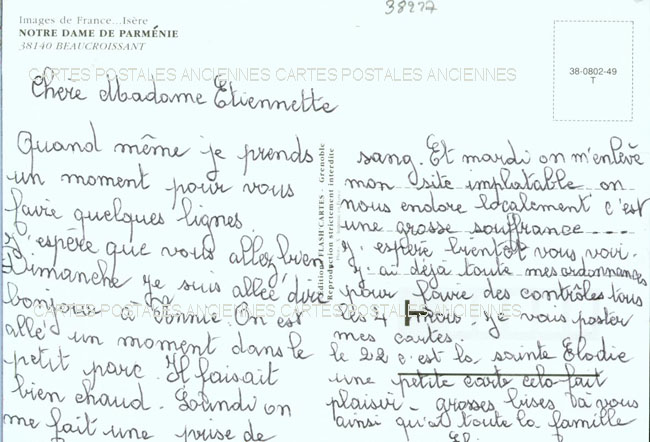 38977
Images de France...Isère
NOTRE DAME DE PARMÉNIE
38140 BEAUCROISSANT
38-0802-49
T
CARTES POSTALES ANCIENNES CARTES POSTALES ANCIENNES
Chère Madame Etiennette
Quand même je prends
un moment pour vous
faire quelques lignes.
J'espère que vous allez bien
Dimanche je suis allée dire
bonjour à
On est
allé un moment dans le
petit parc. Il faisait
bien chaud. Lundi on
me fait une prise de
Editions FLASH CARTES - Grenoble
Reproduction strictement interdite
sang. Et mardi on m'enlève
mon site implatable on
nous endore localement c'est
une grosse souffrance....
J'espère bientôt vous voir.
J'ai déjà toute mes ordonnances
pour faire des contrôles tous
les 4 mois. Je vais poster
mes cartes.
le 22 c'est la sainte Elodie
une petite carte celo fait
plaisir. grosses bises à vous
ainsi qu'à toute la famille
CARTES POSTALES ANCIENNES CARTES POSTALES ANCIENNES